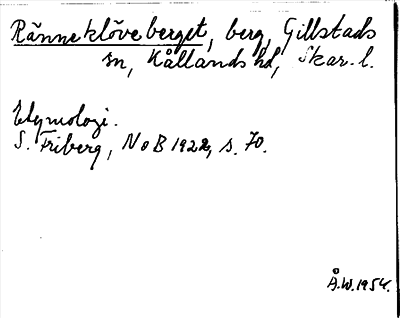 Ränneklöveberget, berg, Gillstads
sn, Kållands hd, Skar. l.
Etymologi.
S. Friberg, NoB 1922, s. 70.
Å.W. 1954.